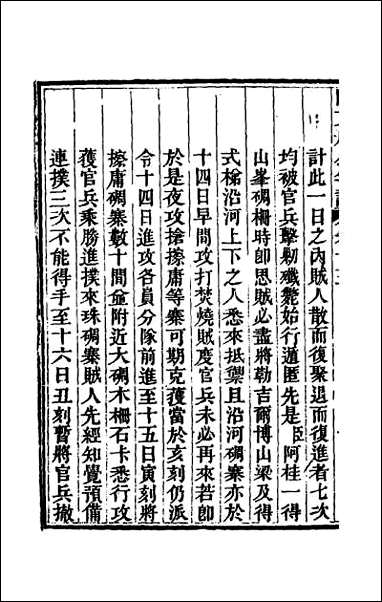 計此一日之內賊人散而復聚退而復進者七次
均被官兵擊剿殲斃始行遁匿先是臣阿桂一得
山峯碉柵時即思賊必盡將勒吉爾博山梁及得
式梯沿河上下之人悉來抵禦且沿河碉寨亦於
十四日早間攻打焚燒賊度官兵未必再來若即
於是夜攻搶擦庸等寨可期克獲當於亥刻仍派
令十四日進攻各員分隊前進至十五日寅刻將
擦庸碉寨數十間並附近大碉木柵石卡悉行攻
獲官兵乘勝進撲來珠碉寨賊人先經知覺預備
連撲三次不能得手至十六日丑刻暫將官兵撤